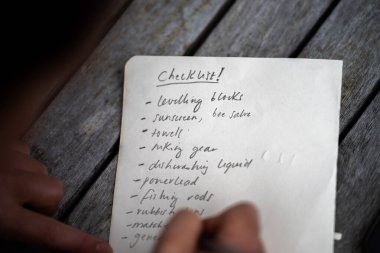 Checklist!
- levelling blocks
- sunscreen, bee salve
- towels
- hiking gear
- dishwashing liquid
- powerlead
- fishing rods
- rubbish
- match
- gene